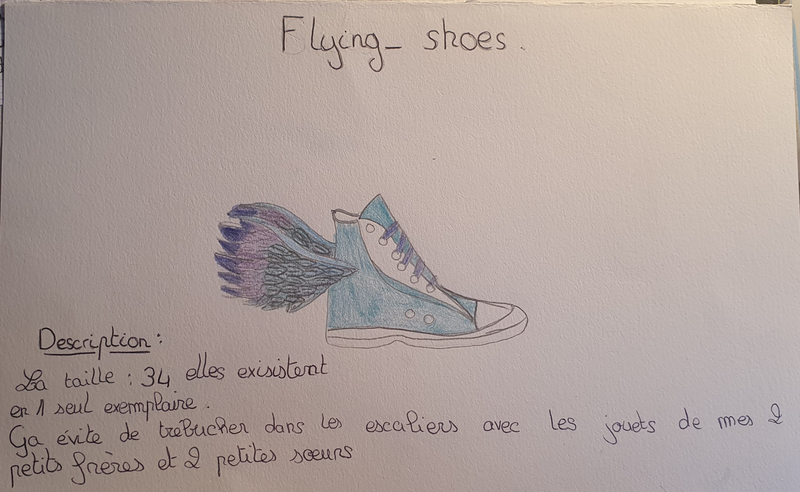 Flying_ shoes.
Description:
La taille : 34 elles exisistent
en 1 seul exemplaire.
Ça évite de trebucher dans les escaliers avec les jouets de mes 2
petits frères et 2 petites sœurs